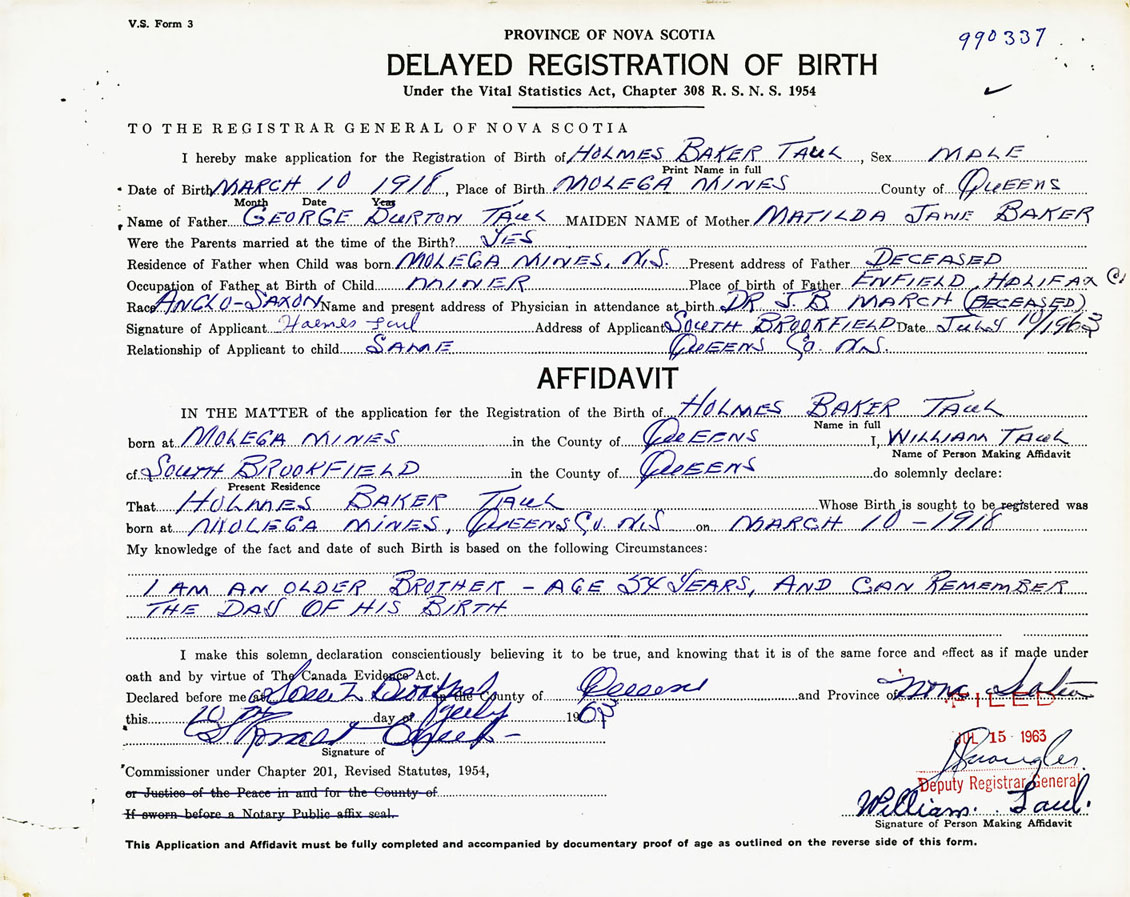 V.S. Form 3
990337
PROVINCE OF NOVA SCOTIA
DELAYED REGISTRATION OF BIRTH
Under the Vital Statistics Act, Chapter 308 R. S. N. S. 1954
TO THE REGISTRAR GENERAL OF NOVA SCOTIA
I hereby make application for the Registration of Birth of HOLMES BAKER TAUL, Sex MALE
Print Name in full
Date of Birth MARCH 10 1918, Place of Birth MOLEGA MINES County of QUEENS
Month Date Year
Name of Father GEORGE BURTON TAUL MAIDEN NAME of Mother MATILDA JANE BAKER
Were the Parents married at the time of the Birth? YES
Residence of Father when Child was born MOLEGA MINES, N.S. Present address of Father DECEASED
Occupation of Father at Birth of Child MINER Place of birth of Father ENFIELD, HALIFAX Co.
Race ANGLO-SAXON Name and present address of Physician in attendance at birth DR J. B MARCH (DECEASED)
Signature of Applicant Taul Address of Applicant SOUTH BROOKFIELD Date JULY 10/1963
Relationship of Applicant to child SAME QUEENS Co. N.S.
AFFIDAVIT
IN THE MATTER of the application for the Registration of the Birth of HOLMES BAKER TAUL
Name in full
born at MOLEGA MINES in the County of QUEENS I, WILLIAM TAUL
Name of Person Making Affidavit
of SOUTH BROOKFIELD in the County of QUEENS do solemnly declare:
Present Residence
That HOLMES BAKER TAUL Whose Birth is sought to be registered was
born at MOLEGA MINES, QUEENS Co. N.S on MARCH 10 - 1918
My knowledge of the fact and date of such Birth is based on the following Circumstances:
I AM AN OLDER BROTHER - AGE 54 YEARS, AND CAN REMEMBER
THE DAY OF HIS BIRTH
I make this solemn declaration conscientiously believing it to be true, and knowing that it is of the same force and effect as if made under
oath and by virtue of The Canada Evidence Act.
Declared before me at South Brookfield in the County of Queens and Province of Nova Scotia
FILED
this 10 day of July 1963
Signature of
JUL 15 1963
Commissioner under Chapter 201, Revised Statutes, 1954,
Deputy Registrar General
or Justice of the Peace in and for the County of
William Taul.
If sworn before a Notary Public affix seal.
Signature of Person Making Affidavit
This Application and Affidavit must be fully completed and accompanied by documentary proof of age as outlined on the reverse side of this form.